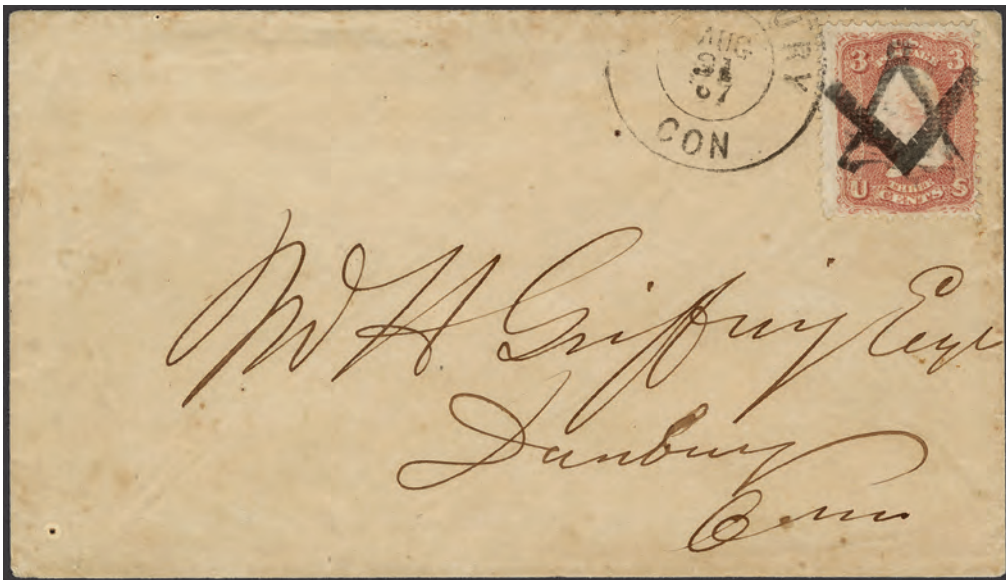 URY
AUG
21
67
CON
3 3
U THREE S
CENTS
Wm H Griffing Esqr
Danbury
Conn